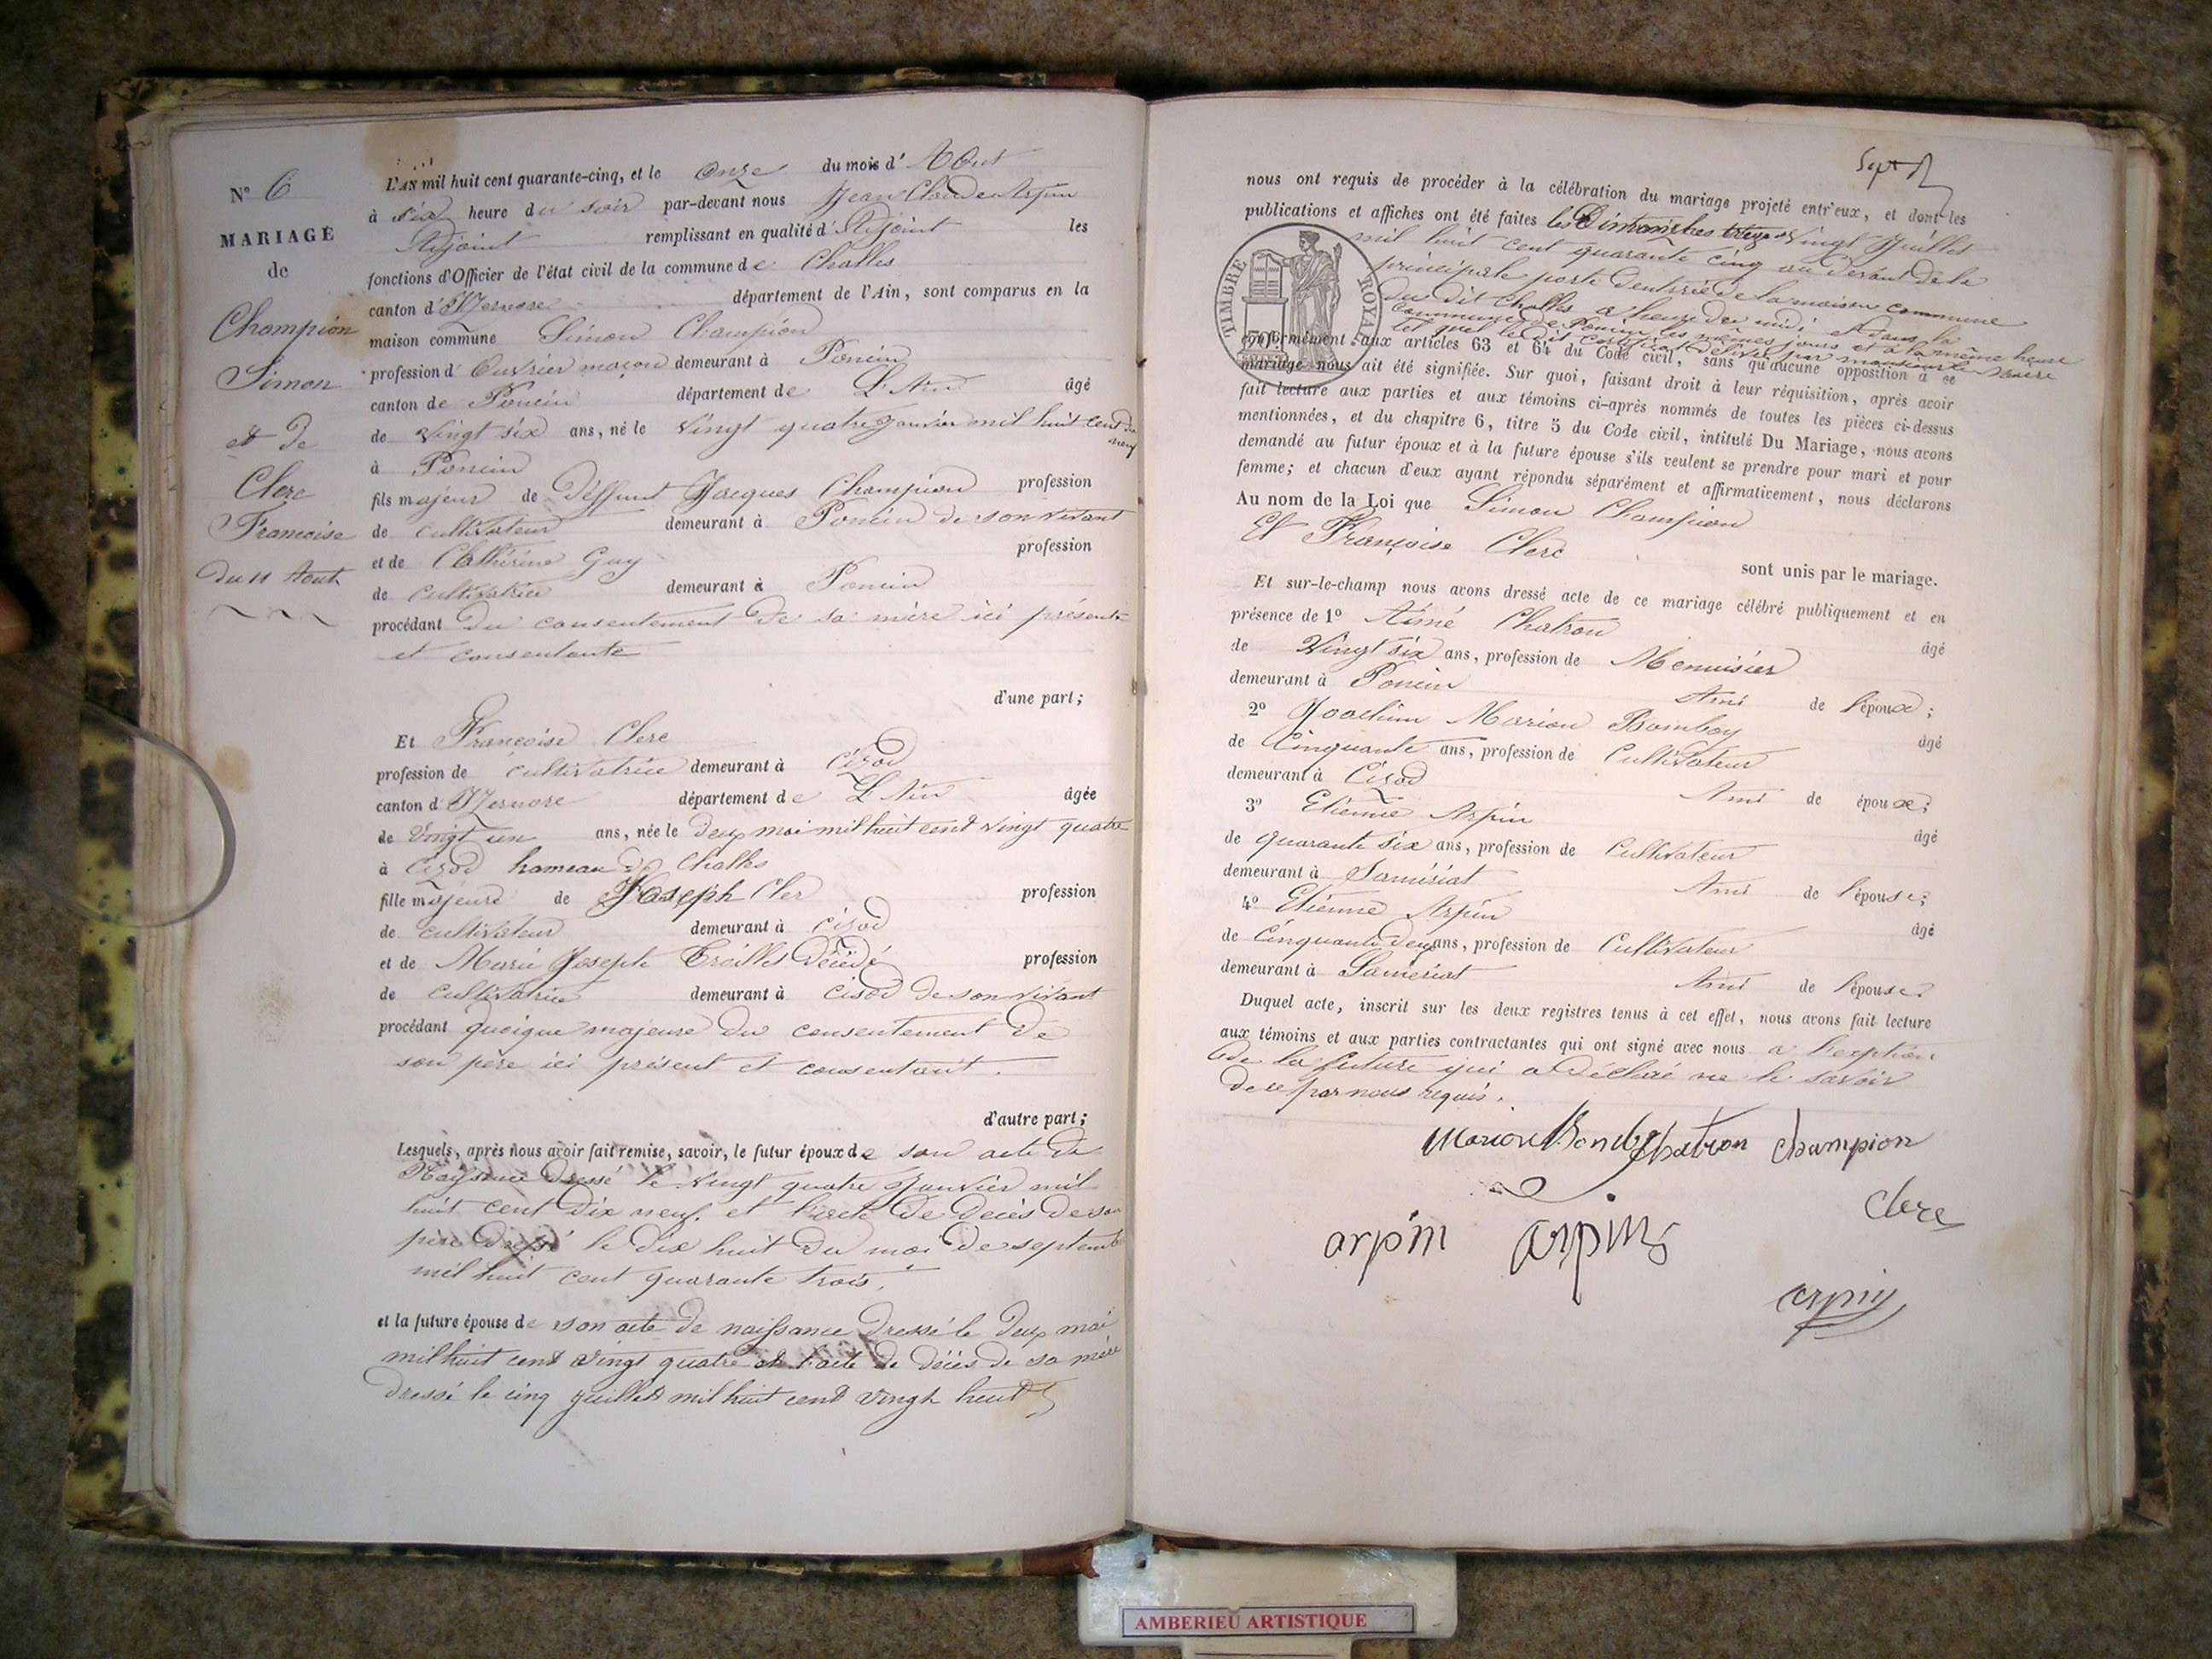 N° 6
MARIAGE
de
Champion
Simon
et de
Clerc
Francoise
du 11 Aout
L'AN mil huit cent quarante-cinq, et le Onze du mois d'Aout
à six heure du soir par-devant nous Jean Claude Arpin
Adjoint remplissant en qualité d'Adjoint les
fonctions d'Officier de l'état civil de la commune de Challes
canton d'Izernore département de l'Ain, sont comparus en la
maison commune Simon Champion
profession d'Ouvrier maçon demeurant à Poncin
canton de Poncin département de L'Ain âgé
de Vingt six ans, né le Vingt quatre Janvier mil huit cent dix
neuf
à Poncin
fils majeur de déffunt Jacques Champion profession
de cultivateur demeurant à Poncin de son vivant
et de Cathérine Guy profession
de cultivatrice demeurant à Poncin
procédant du consentement de sa mère ici présente
et consentante
d'une part;
Et Francoise Clerc
profession de cultivatrice demeurant à Cizod
canton d'Izernore département de L'Ain âgée
de Vingt un ans, née le deux mai mil huit cent vingt quatre
à Cizod hameau de Challes
fille majeure de Joseph Cler profession
de cultivateur demeurant à cizod
et de Marie Josephe décédé profession
de cultivatrice demeurant à cisod de son vivant
procédant quoique majeure du consentement de
son père ici présent et consentant.
d'autre part;
Lesquels, après nous avoir fait remise, savoir, le futur époux de son acte de
Naissance dressé le vingt quatre Janvier mil
huit cent dix neuf. et l'acte de décès de son
père dressé le dix huit du moi de septemb
mil huit cent quarante trois.
et la future épouse de son acte de naissance dressé le deux mai
mil huit cent vingt quatre et l'acte de décès de sa mère
dressé le cinq juillet mil huit cent vingt huit
Sept
nous ont requis de procéder à la célébration du mariage projeté entr'eux, et dont les
publications et affiches ont été faites les Dimanches treize Vingt Juillet
mil huit cent quarante cinq au devant de la
principale porte d'entrée de la maison commune
du dit Challes a heure de midi et dans la
commune de Poncin les mêmes jours et a la même heure
tel quel le dit certificat délivré par monsieur le Maire
TIMBRE ROYAL
conformément aux articles 63 et 64 du Code civil, sans qu'aucune opposition à ce
mariage nous ait été signifiée. Sur quoi, faisant droit à leur réquisition, après avoir
fait lecture aux parties et aux témoins ci-après nommés de toutes les pièces ci-dessus
mentionnées, et du chapitre 6, titre 5 du Code civil, intitulé Du Mariage, nous avons
demandé au futur époux et à la future épouse s'ils veulent se prendre pour mari et pour
femme; et chacun d'eux ayant répondu séparément et affirmativement, nous déclarons
Au nom de la Loi que Simon Champion
Et Françoise Clerc
sont unis par le mariage.
Et sur-le-champ nous avons dressé acte de ce mariage célébré publiquement et en
présence de 1° Aimé Chatron âgé
de Vingt six ans, profession de Menuisier
demeurant à Poncin Ami de l'époux;
2° Joachim Marion Bomboy âgé
de Cinquante ans, profession de Cultivateur
demeurant à Cizod Ami de époux;
3° Etienne Arpin âgé
de quarante six ans, profession de Cultivateur
demeurant à Samériat Ami de l'épouse;
4° Etienne Arpin âgé
de Cinquante deux ans, profession de Cultivateur
demeurant à Samériat Ami de l'épouse.
Duquel acte, inscrit sur les deux registres tenus à cet effet, nous avons fait lecture
aux témoins et aux parties contractantes qui ont signé avec nous a l'exption
de la future qui a déclaré ne le savoir
de ce par nous requis.
Marion Chatron Champion
Clerc
arpin arpin
arpin
AMBERIEU ARTISTIQUE